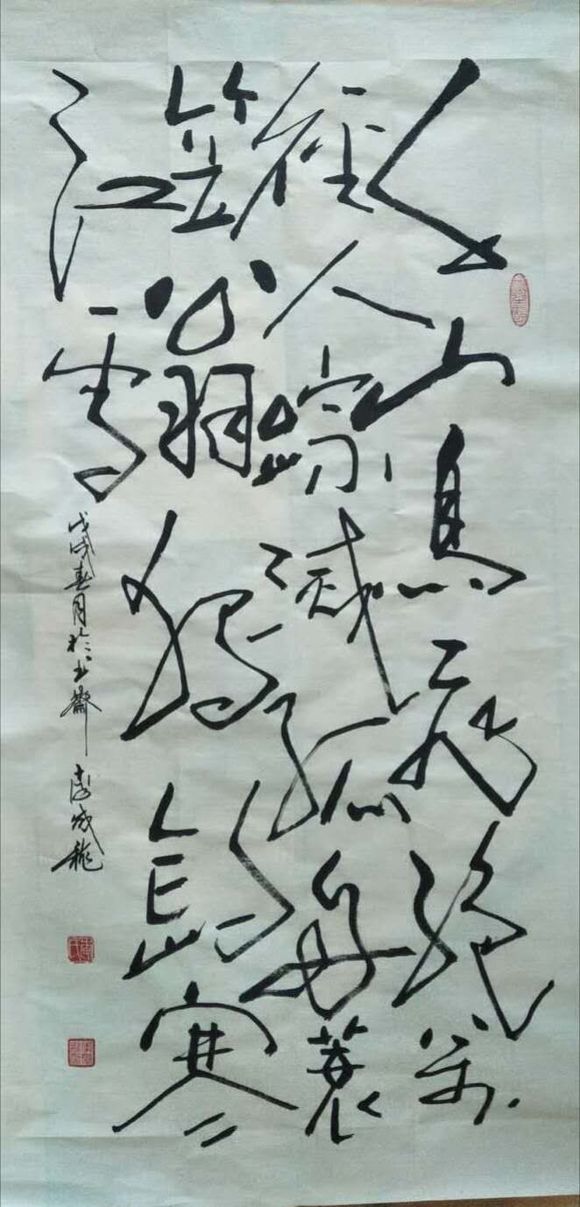 千山鳥飛絕萬
徑人踪滅孤舟蓑
笠翁獨釣寒
江雪
戊戌春月於书齋 李成龍